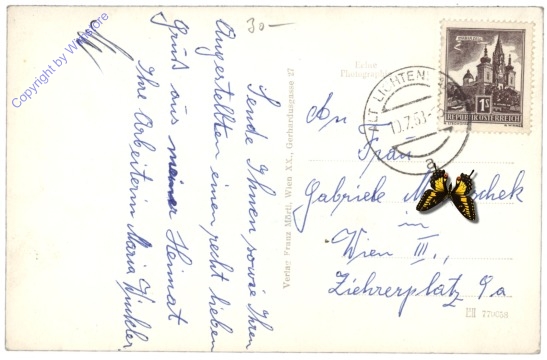 30-
Sende Ihnen sowie Ihren
Angestellten einen recht lieben
Gruß aus meiner Heimat
Ihre Arbeiterin Maria Winkler.
Copyright by W
Verlag Franz Mörtl, Wien XX., Gerhardusgasse 27
Echte
Photographie
ALT LICHTEN
10.7.6
a
MARIAZELL
1S
REPUBLIK ÖSTERREICH
An
Frau
Gabriele
in
Wien III.,
Ziehrerplatz 9a
770258